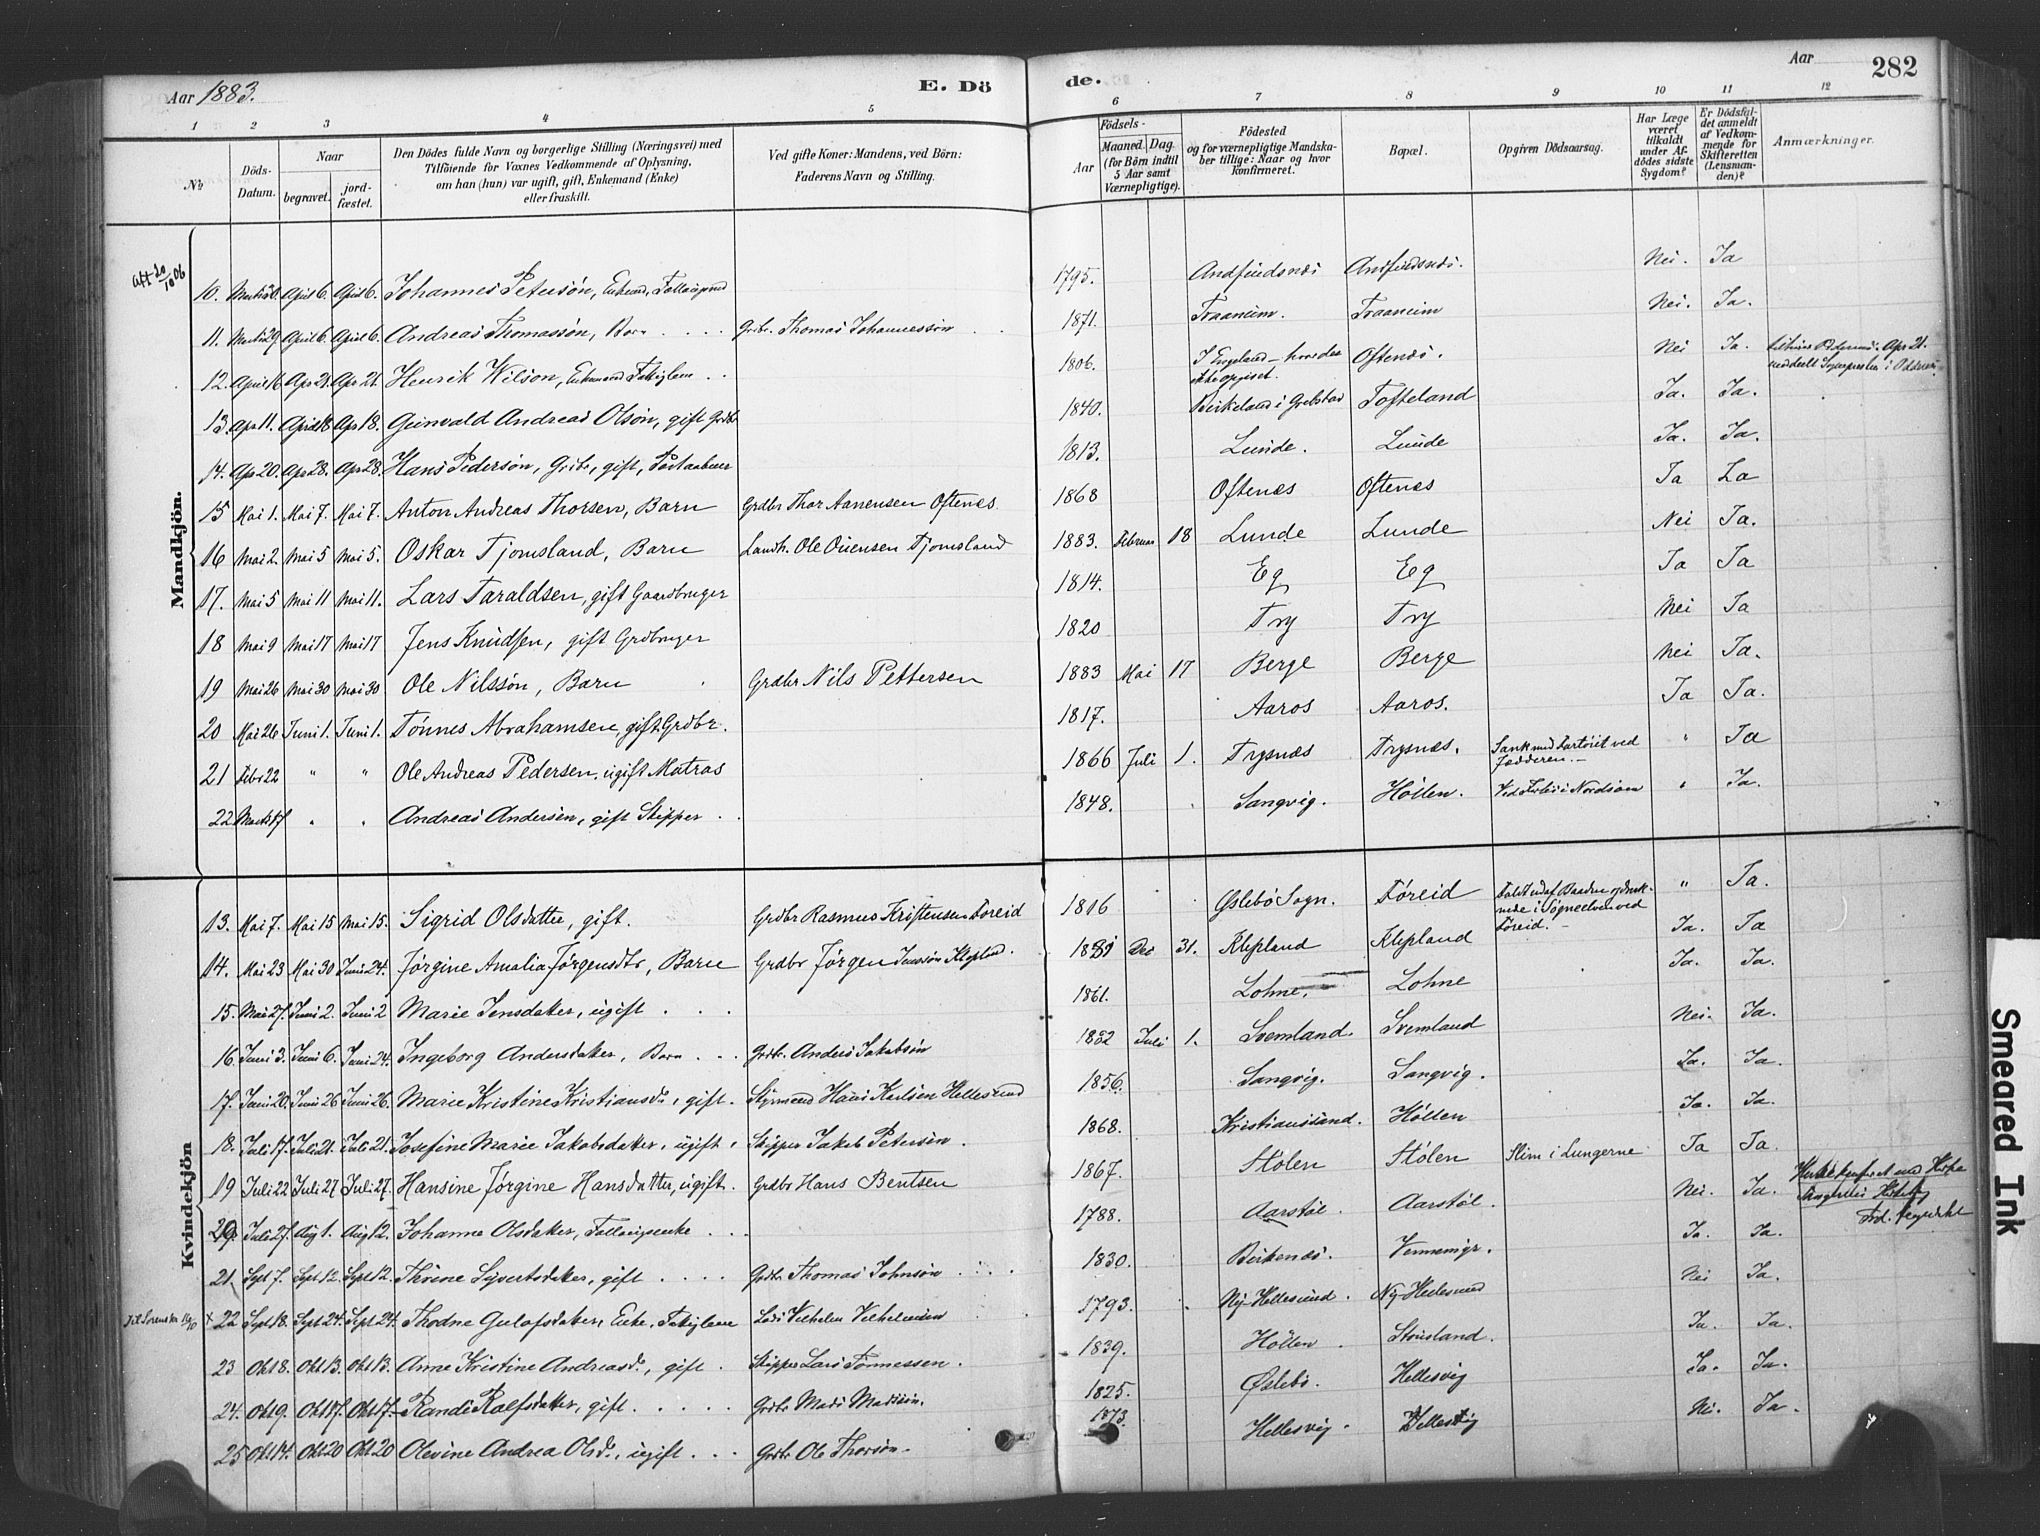 Aar 1883.
E. Döde.
Aar
282
1 2 3 4 5 6 7 8 9 10 11 12
№
Döds-Datum.
Naar
begravet.
jord-fæstet.
Den Dödes fulde Navn og borgerlige Stilling (Næringsvei) med
Tilföiende for Voxnes Vedkommende af Oplysning,
om han (hun) var ugift, gift, Enkemand (Enke)
eller fraskilt.
Ved gifte Koner: Mandens, ved Börn:
Faderens Navn og Stilling.
Födsels-
Aar
Maaned. Dag.
(for Börn indtil
5 Aar samt
Værnepligtige).
Födested
og for værnepligtige Mandska-
ber tillige: Naar og hvor
konfirmeret.
Bopæl.
Opgiven Dödsaarsag.
Har Læge
været
tilkaldt
under Af-
dödes sidste
Sygdom?
Er Dödsfal-
det anmeldt
af Vedkom-
mende for
Skifteretten
(Lensman-
den)?
Anmærkninger.
Mandkjön.
10. April 6. April 6. Johannes Petersön, 1795. Nei. Ja
11. April 6. April 6. Andreas Thomassön, Barn Grdbr. Thomas Johannessön 1871. Traaneim. Traaneim Nei. Ja.
12. April 16 Apr 21. Apr 21. Henrik Wilson, 1806. I Engeland Oftenæs. Nei Ja.
13. Apr 11. April 18 Apr 18. Gunvald Andreas Olsön, gift Grdbr 1840. Birkeland i Tofteland Ja. Ja.
14. Apr 20. Apr 28. Apr 28. Hans Pedersön, Grdbr, gift, 1813. Lunde. Lunde Ja. Ja.
15 Mai 1. Mai 7. Mai 7. Anton Andreas Thorsen, Barn Grdbr Thor Aanensen Oftenæs. 1868 Oftenæs Oftenæs Ja Ja
16 Mai 2. Mai 5 Mai 5. Oskar Tjomsland, Barn Ole Tjomsland 1883. Februar 18 Lunde Lunde Nei Ja.
17. Mai 5 Mai 11 Mai 11. Lars Taraldsen, gift Gaardbruger 1814. Eg Eg Ja Ja
18 Mai 9 Mai 17 Mai 17 Jens Knudsen, gift Grdbruger 1820 Try Try Nei Ja
19 Mai 26 Mai 30 Mai 30 Ole Nilssön, Barn Grdbr Nils Pettersen 1883 Mai 17 Berge Berge Nei Ja.
20 Mai 26 Juni 1. Juni 1. Tönnes Abrahamsen, gift Grdbr. 1817. Aaros Aaros. Ja Ja.
21 Febr 22 " " Ole Andreas Pedersen, ugift Matros 1866 Juli 1. Trysnæs Trysnæs. Sank med Fartöiet ved Jædderen. " Ja
22 Marts 17 Andreas Andersen, gift Skipper 1848. Sangvig. Höllen. Ved Forlis i Nordsöen Ja.
Kvindekjön
13. Mai 7. Mai 15 Mai 15. Sigrid Olsdatter, gift. Grdbr Rasmus Kristensen Föreid 1816 Øslebö Sogn. Föreid Faldt ud af Baaden og druk-
nede i Søgneelven ved
Föreid. " Ja.
14. Mai 23 Mai 30 Juni 24. Jørgine Amalia Jørgensdtr, Barn Grdbr Jørgen Jenssön 1881 Dec 31. Klepland Klepland Ja. Ja
15. Mai 27. Juni 2. Juni 2 Marie Jensdatter, ugift 1861. Lohne. Lohne Ja. Ja.
16. Juni 3. Juni 6. Juni 24. Ingeborg Andersdatter, Barn Grdbr. Anders Jakobsön 1882 Juli 1. Svemland. Svemland Nei. Ja.
17. Juni 20. Juni 26 Juni 26. Marie Kristine Kristiansd., gift. Styrmand Hans Karlsen Hellesund 1856. Sangvig. Sangvig. Ja. Ja.
18. Juli 17. Juli 21. Juli 21. Josefine Marie Jakobsdatter, ugift. Skipper Jakob Petersen. 1868. Kristianssand. Höllen Ja. Ja.
19 Juli 22 Juli 27 Juli 27. Hansine Jørgine Hansdatter, ugift. Grdbr Hans Bentsen 1867. Stölen Stölen Slim i Lungerne Ja Ja.
20. Juli 27. Aug 1. Aug 12. Johanne Olsdatter, 1788. Aarstöl. Aarstöl. Nei. Ja.
21. Sept 7. Sept 12. Sept 12. Sivertsdatter, gift Grdbr. Thomas Johnsön 1830. Birkenæs. Ja. Ja.
22 Sept 18. Sept 24. Sept 24. Enke, 1793. Ny-Hellesund. Ny-Hellesund Nei Ja.
23 Okt 8. Okt 13. Okt 13. Anne Kristine Andreasd., gift. Skipper Lars Tönnessen. 1839. Höllen Stousland. Ja. Ja.
24. Okt 9. Okt 17. Okt 17. Randi Rolfsdatter, gift. Grdbr Mads Madssön. 1825. Øslebö. Hellesvig Ja. Ja.
25 Okt 14. Okt 20 Okt 20 Olevine Andrea Olsd., ugift Grdbr Ole Thorsön. 1873. Hellesvig. Hellesvig Nei. Ja.
Smeared Ink